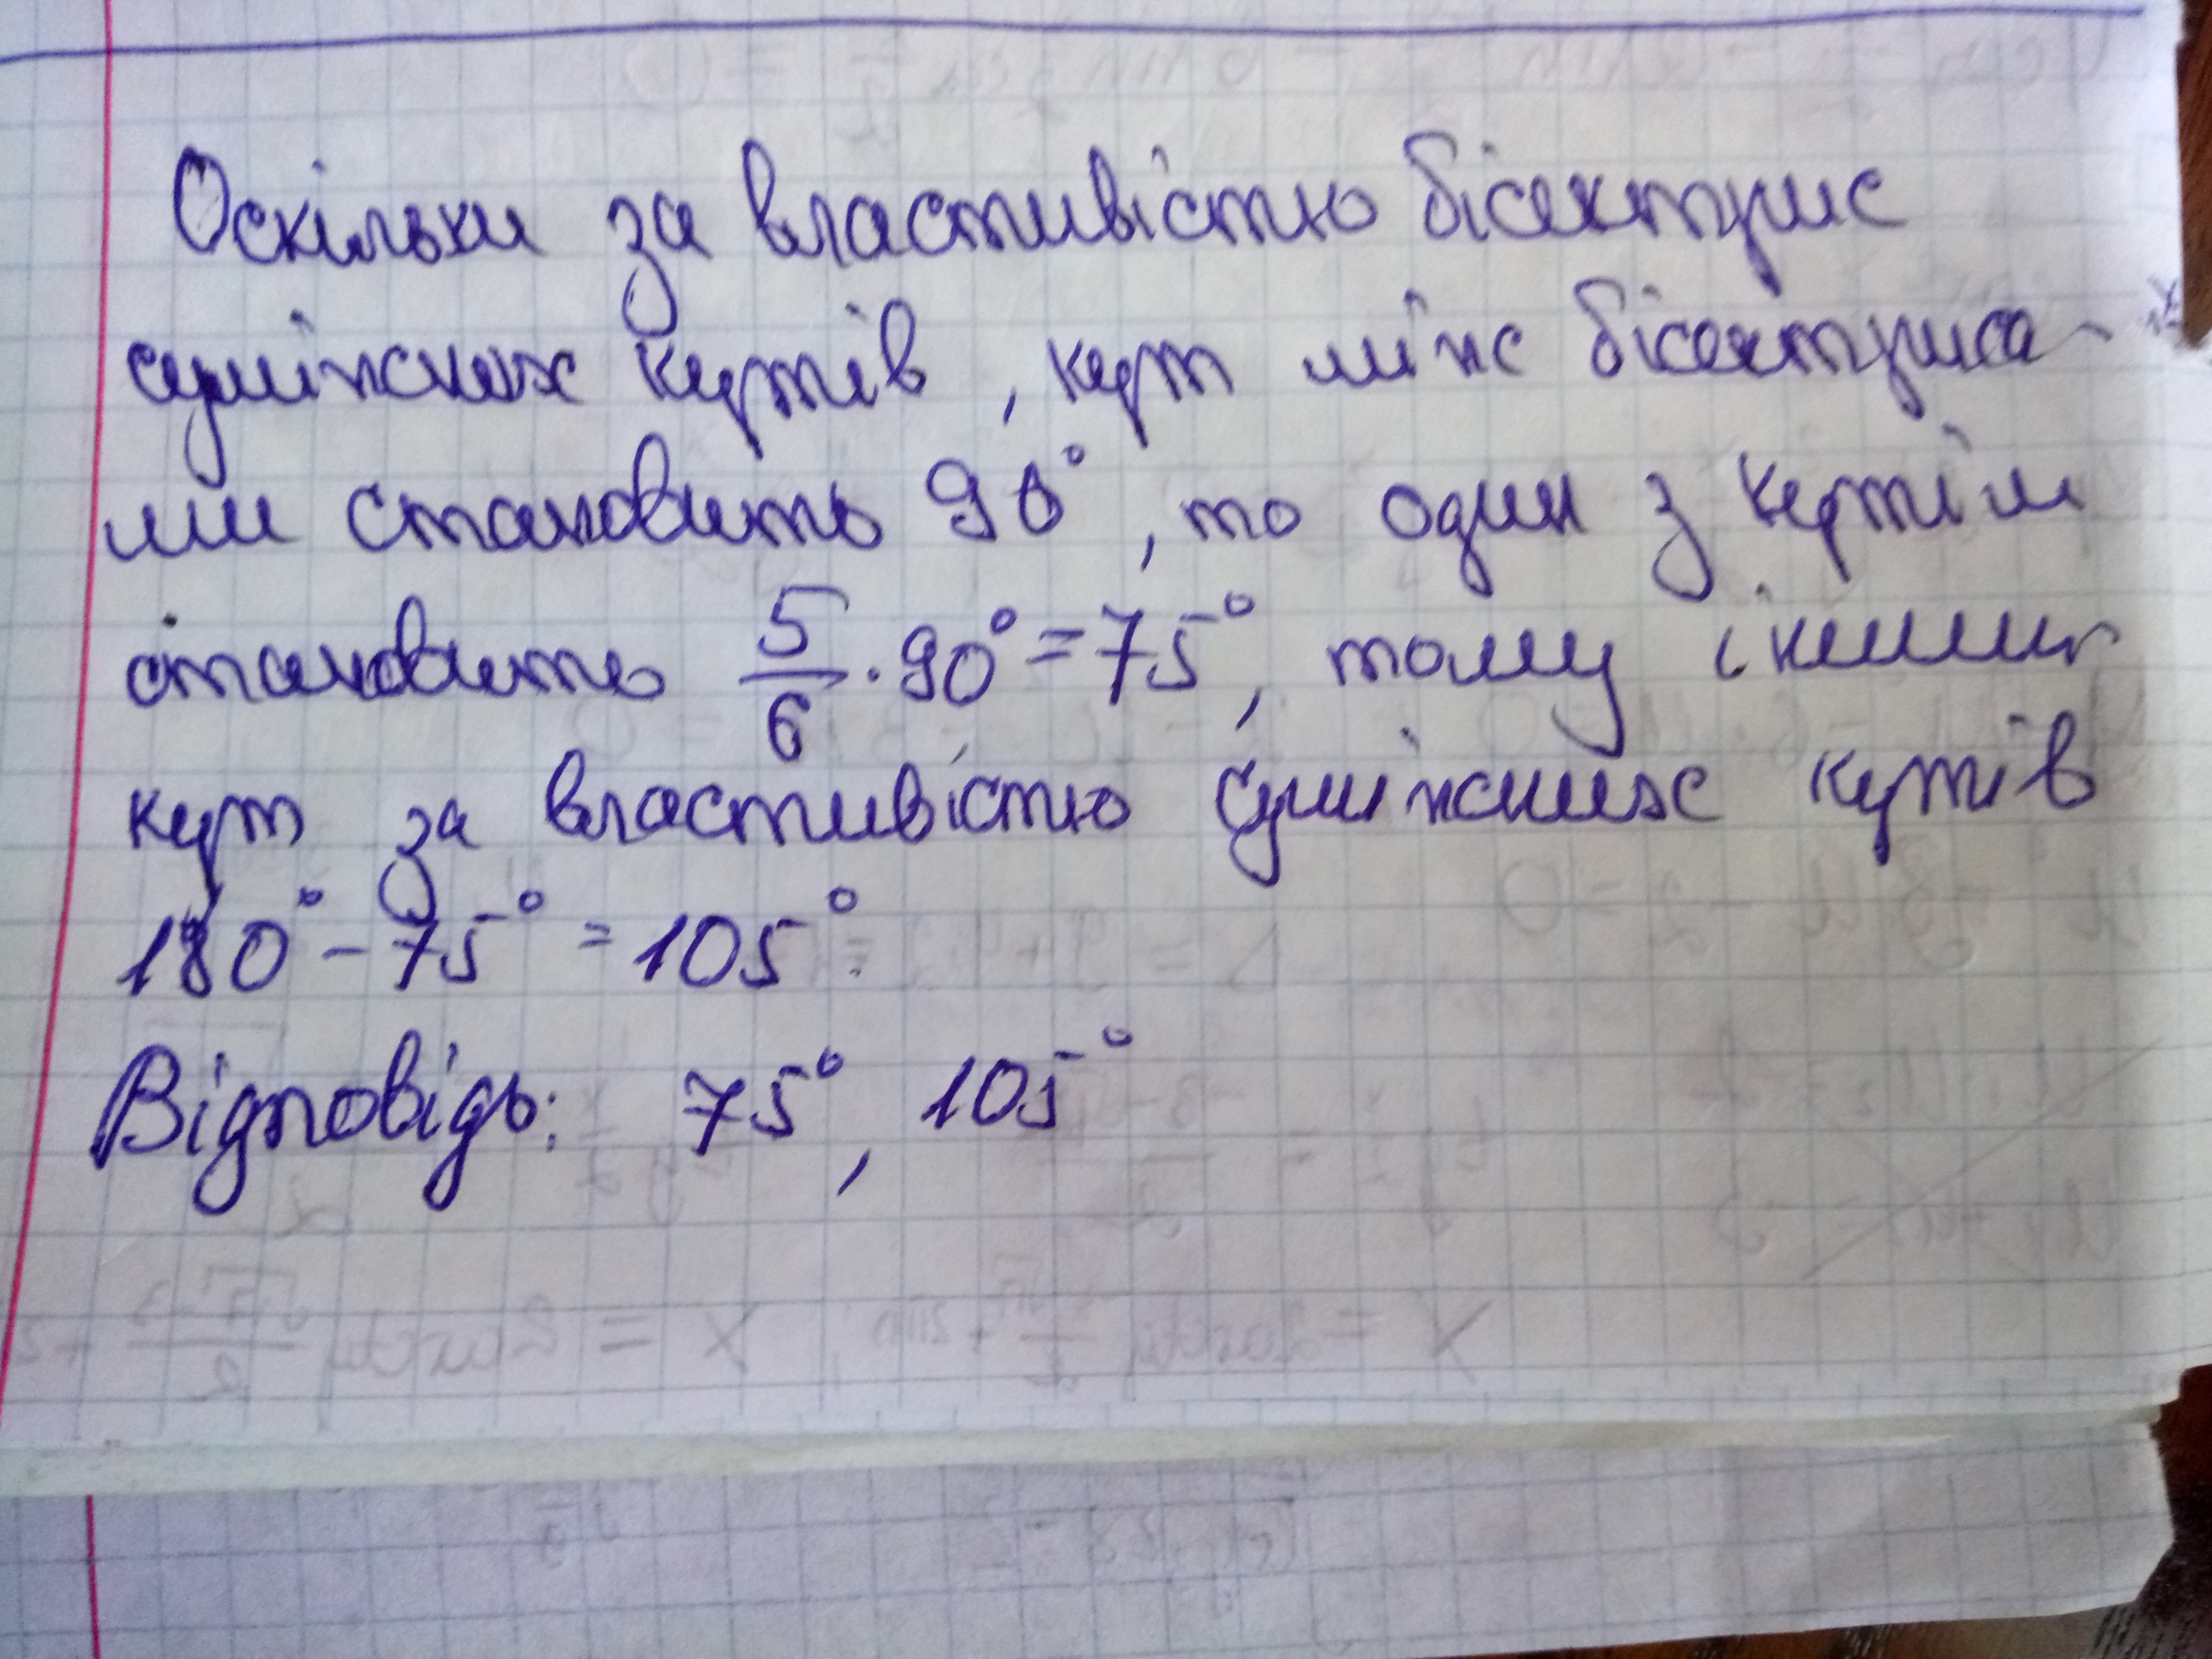 Оскільки за властивістю бісектрис
суміжних кутів, кут між бісектриса-
ми становить 90°, то один з кутів
становить 5/6 · 90° = 75°, тому інший
кут за властивістю суміжних кутів
180° - 75° = 105°.
Відповідь: 75°, 105°